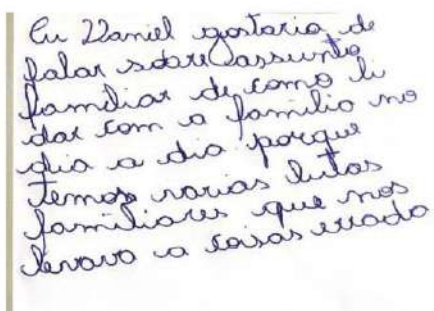 Eu Daniel gostaria de
falar sobre assunto
familiar de como li
dar com a familia no
dia a dia porque
temos varias lutas
familiares que nos
levava a coisas errada